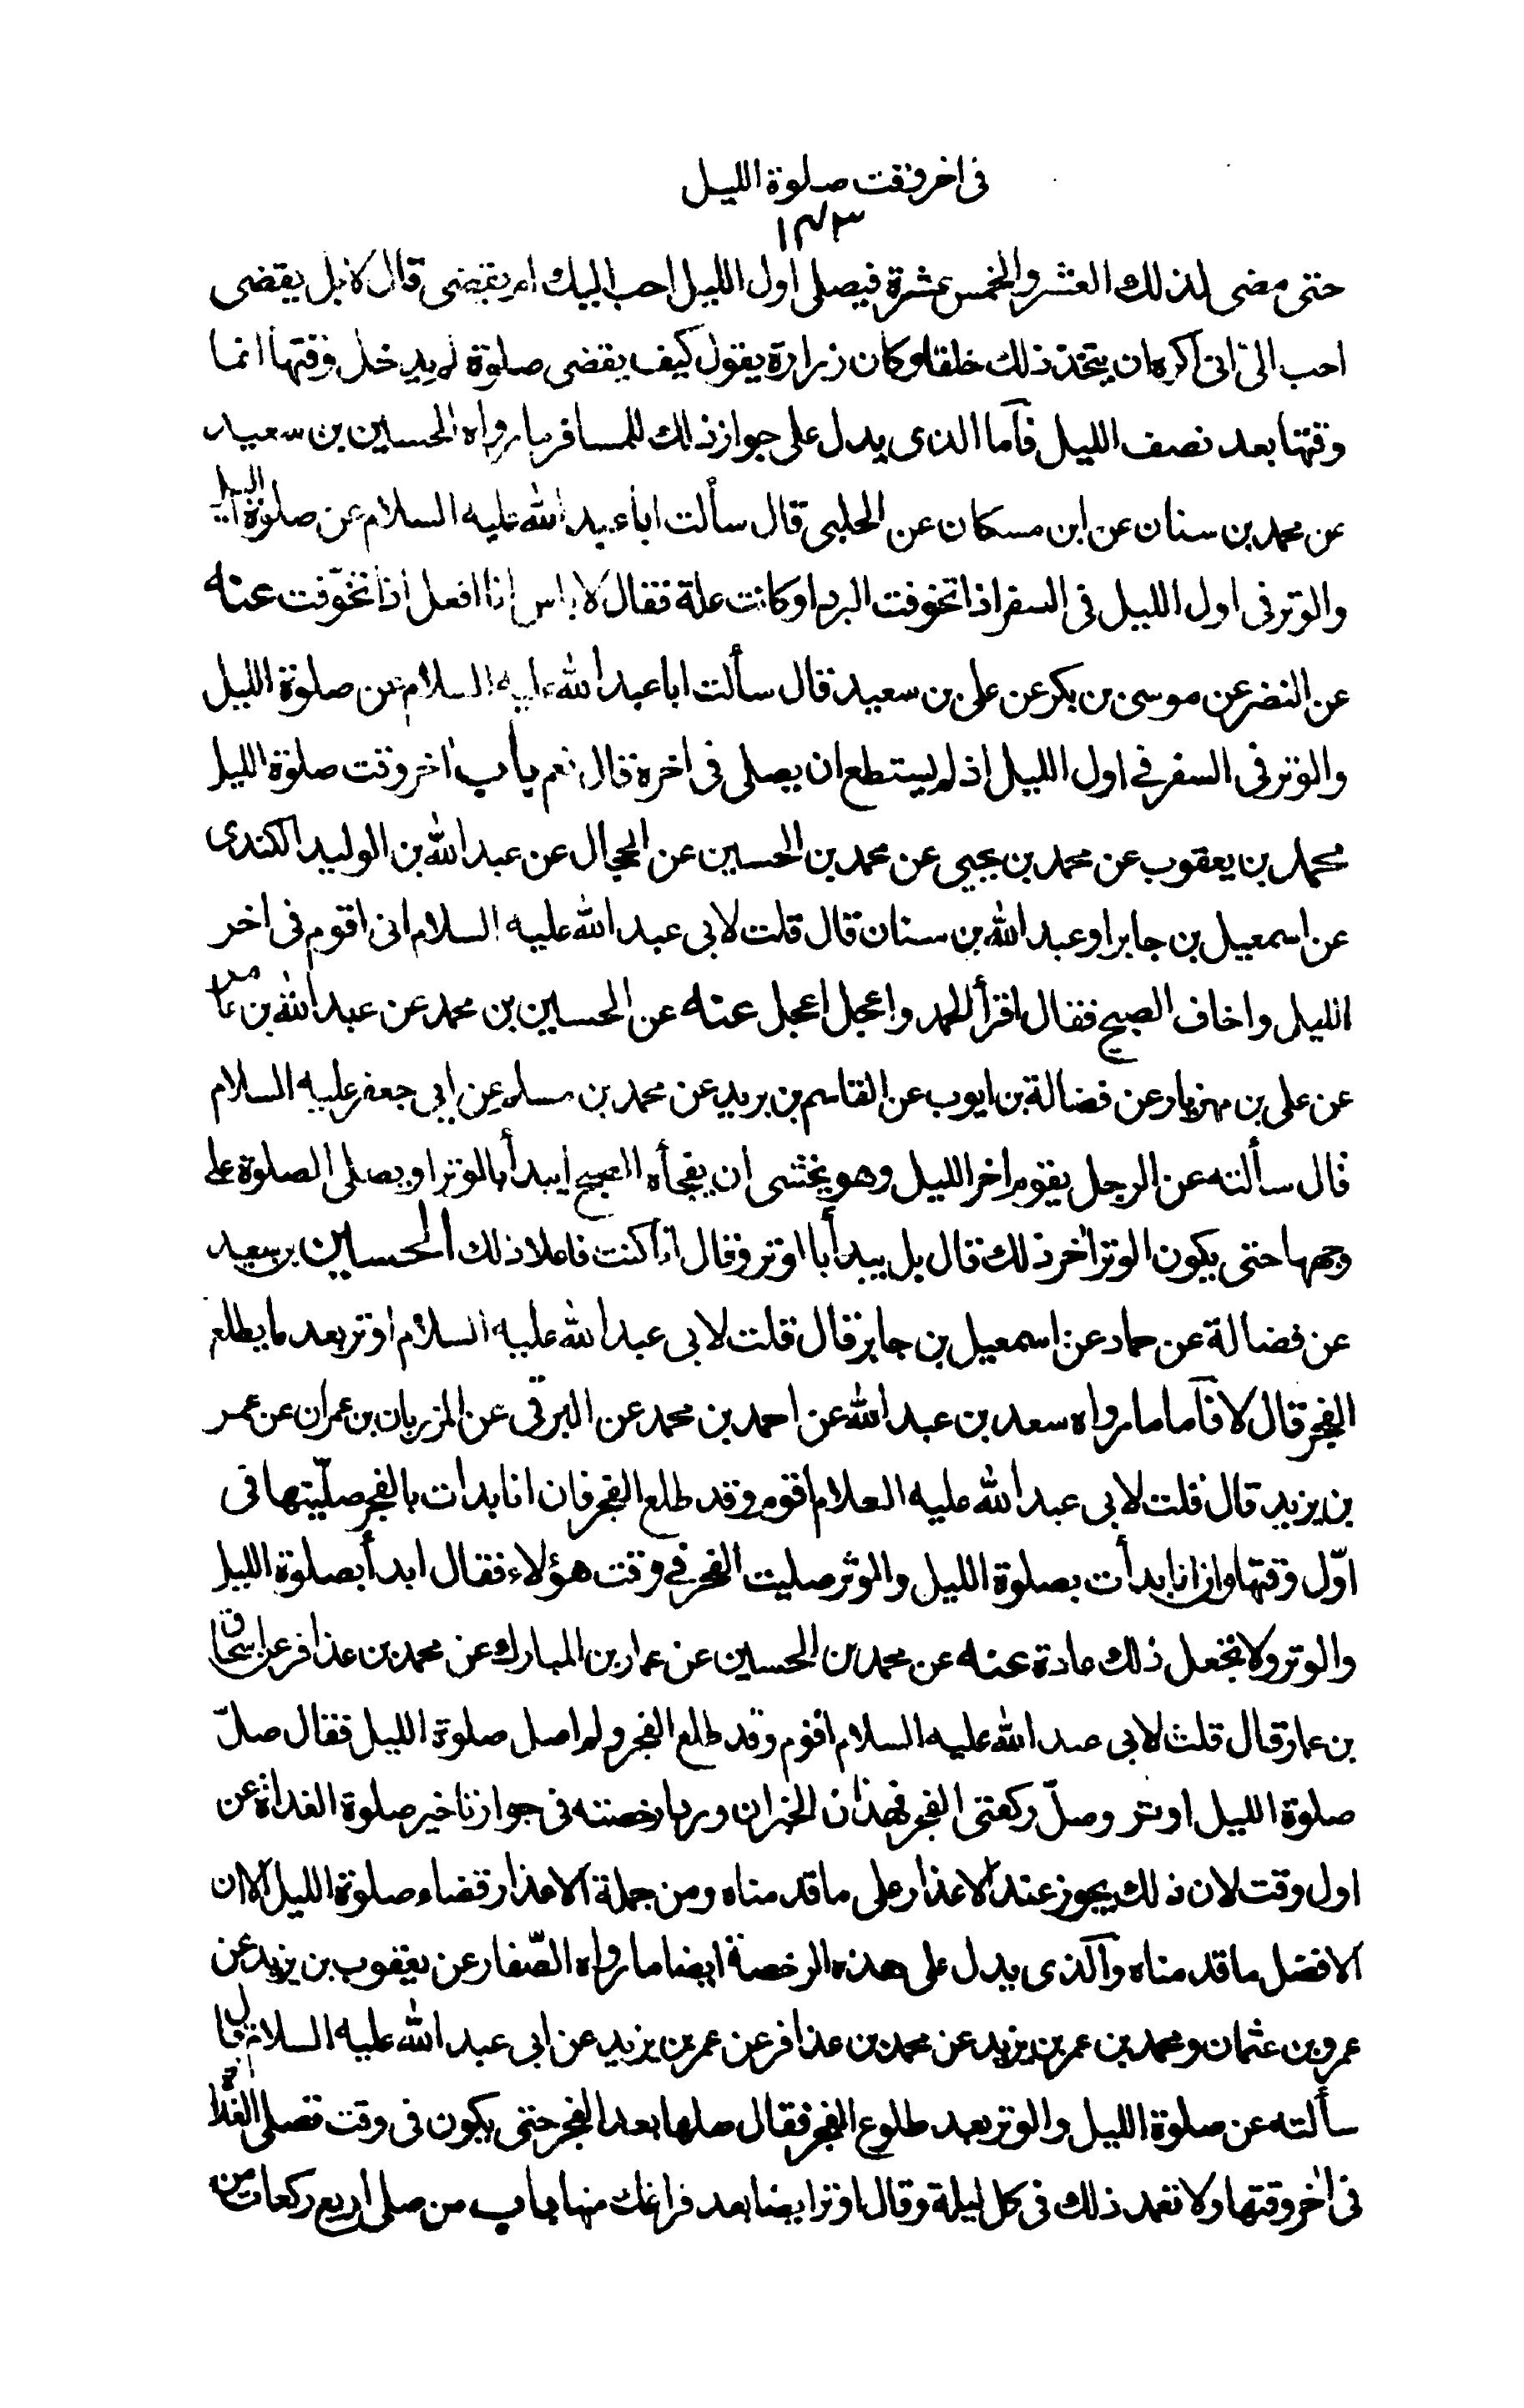 في اخر وقت صلوة الليل
١٤٣
حتى مضى لذلك العشر والخمس عشرة فيصلى اول الليل احب اليك ام يقضى قال لا بل يقضى
احب الىّ انى اكره ان يتخذ ذلك خلقا وكان زرارة يقول كيف يقضى صلوة لم يدخل وقتها انما
وقتها بعد نصف الليل فآما الذى يدل على جواز ذلك للمسافر ما رواه الحسين بن سعيد
عن محمد بن سنان عن ابن مسكان عن الحلبى قال سألت ابا عبد الله عليه السلام عن صلوة الليل
والوتر فى اول الليل فى السفر اذا تخوفت البرد او كانت علة فقال لا باس انا افعل اذا تخوّفت عنه
عن النضر عن موسى بن بكر عن على بن سعيد قال سألت ابا عبد الله عليه السلام عن صلوة الليل
والوتر فى السفر في اول الليل اذ لم يستطع ان يصلى فى اخره قال نعم باب اخر وقت صلوة الليل
محمد بن يعقوب عن محمد بن يحيى عن محمد بن الحسين عن الحجال عن عبد الله بن الوليد الكندى
عن اسمعيل بن جابر او عبد الله بن سنان قال قلت لابى عبد الله عليه السلام انى اقوم فى اخر
الليل واخاف الصبح فقال اقرأ الحمد واعجل اعجل عنه عن الحسين بن محمد عن عبد الله بن عامر
عن على بن مهزيار عن فضالة بن ايوب عن القاسم بن بريد عن محمد بن مسلم عن ابى جعفر عليه السلام
قال سألته عن الرجل يقوم اخر الليل وهو يخشى ان يفجأه الصبح ايبدأ بالوتر او يصلى الصلوة على
وجهها حتى يكون الوتر اخر ذلك قال بل يبدأ با اوتر وقال انا كنت فاعلا ذلك الحسين بن سعيد
عن فضالة عن حماد عن اسمعيل بن جابر قال قلت لابى عبد الله عليه السلام اوتر بعد ما يطلع
الفجر قال لا فآما ما رواه سعد بن عبد الله عن احمد بن محمد عن البرقى عن المزربان بن عمران عن عمر
بن يزيد قال قلت لابى عبد الله عليه السلام اقوم وقد طلع الفجر فان انا بدات بالفجر صلّيتها فى
اوّل وقتها وان انا بدأت بصلوة الليل والوتر صليت الفجر في وقت هؤلاء فقال ابدأ بصلوة الليل
والوتر ولا تجعل ذلك عادة عنه عن محمد بن الحسين عن عمار بن المبارك عن محمد بن عذافر عن اسحاق
بن عمار قال قلت لابى عبد الله عليه السلام اقوم وقد طلع الفجر ولم اصل صلوة الليل فقال صلّ
صلوة الليل اوتر وصلّ ركعتى الفجر فهذان الخبران وردا رخصته فى جواز تاخير صلوة الغداة عن
اول وقت لان ذلك يجوز عند الاعذار على ما قدمناه ومن جملة الاعذار قضاء صلوة الليل الا ان
الافضل ما قدمناه وآلذى يدل على هذه الرخصة ايضا ما رواه الصّفار عن يعقوب بن يزيد عن
عمرو بن عثمان ومحمد بن عمر بن يزيد عن محمد بن عذافر عن عمر بن يزيد عن ابى عبد الله عليه السلام قال
سألته عن صلوة الليل والوتر بعد طلوع الفجر فقال صلها بعد الفجر حتى يكون فى وقت تصلى الغداة
فى اخر وقتها ولا تعمد ذلك فى كل ليلة وقال اوتر ايضا بعد فراغك منها باب من صلى اربع ركعات من